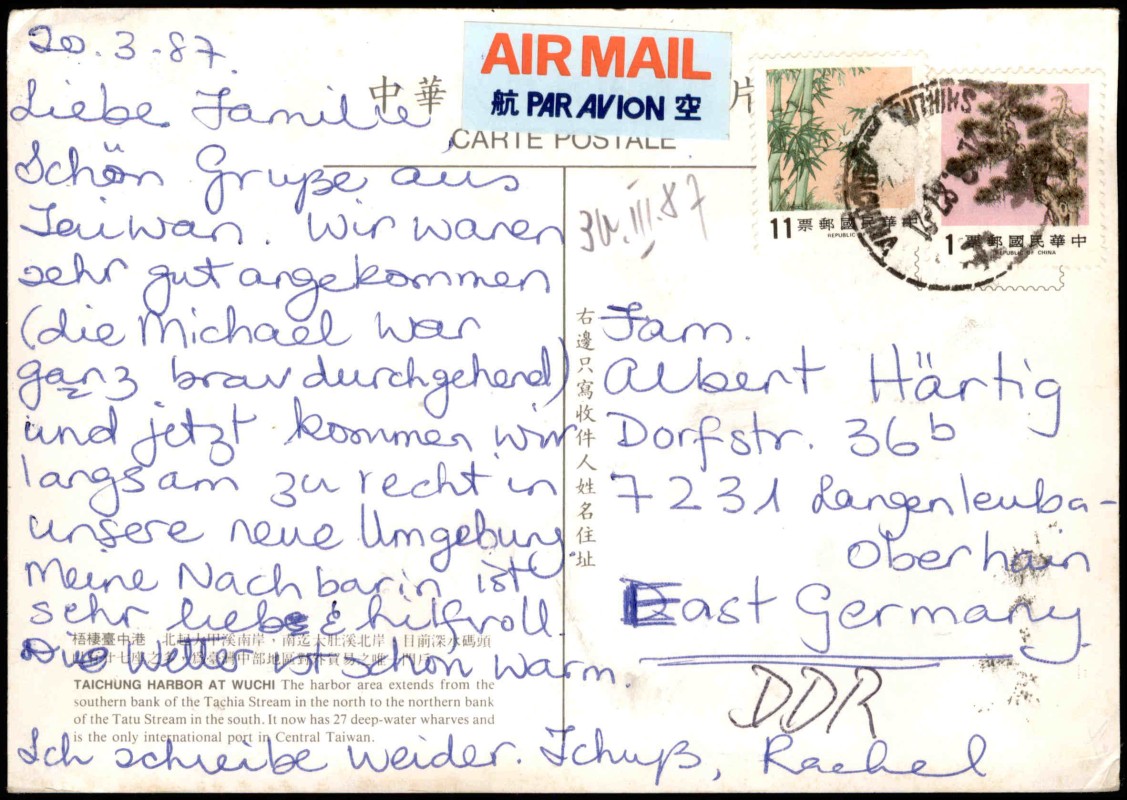 20.3.87.
Liebe Familie
Schön Gruße aus
Taiwan. Wir waren
sehr gut angekommen
(die Michael war
ganz brav durchgehend)
und jetzt kommen wir
langsam zu recht in
unsere neue Umgebung.
Meine Nachbarin ist
sehr liebe & hilfvoll
Die Wetter ist schön warm.
Ich schreibe weider. Tchuß, Rachel
中華
片
AIR MAIL
航 PAR AVION 空
CARTE POSTALE
11 票郵國民華中
REPUBLIC OF CHINA
1 票郵國民華中
REPUBLIC OF CHINA
30.III.87
右邊只寫收件人姓名住址
Fam.
Albert Härtig
Dorfstr. 36b
7231 Langenleuba-
Oberhain
East Germany
DDR
梧棲臺中港
北起大甲溪南岸,南迄大肚溪北岸,目前深水碼頭
TAICHUNG HARBOR AT WUCHI The harbor area extends from the
southern bank of the Tachia Stream in the north to the northern bank
of the Tatu Stream in the south. It now has 27 deep-water wharves and
is the only international port in Central Taiwan.